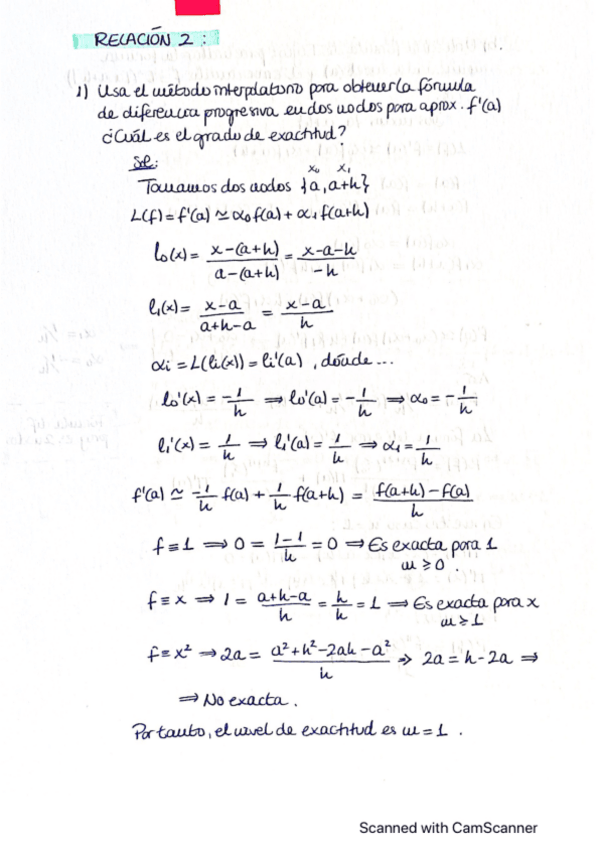 RELACIÓN 2 :
1) Usa el método interpolatorio para obtener la fórmula
de diferencia progresiva en dos nodos para aprox. f'(a)
¿Cuál es el grado de exactitud?
Sol:
x₀ x₁
Tomamos dos nodos {a, a+h}
L(f) = f'(a) ≃ α₀ f(a) + α₁ f(a+h)
l₀(x) = x-(a+h) / a-(a+h) = x-a-h / -h
l₁(x) = x-a / a+h-a = x-a / h
αi = L(li(x)) = li'(a) , dónde ...
l₀'(x) = -1/h ⟹ l₀'(a) = -1/h ⟹ α₀ = -1/h
l₁'(x) = 1/h ⟹ l₁'(a) = 1/h ⟹ α₁ = 1/h
f'(a) ≃ -1/h f(a) + 1/h f(a+h) = f(a+h) - f(a) / h
f ≡ 1 ⟹ 0 = 1-1 / h = 0 ⟹ Es exacta para 1
m ≥ 0 .
f ≡ x ⟹ 1 = a+h-a / h = h/h = 1 ⟹ Es exacta para x
m ≥ 1
f ≡ x² ⟹ 2a = a²+h²-2ah-a² / h ⟹ 2a = h-2a ⟹
⟹ No exacta .
Por tanto, el nivel de exactitud es m = 1 .
Scanned with CamScanner